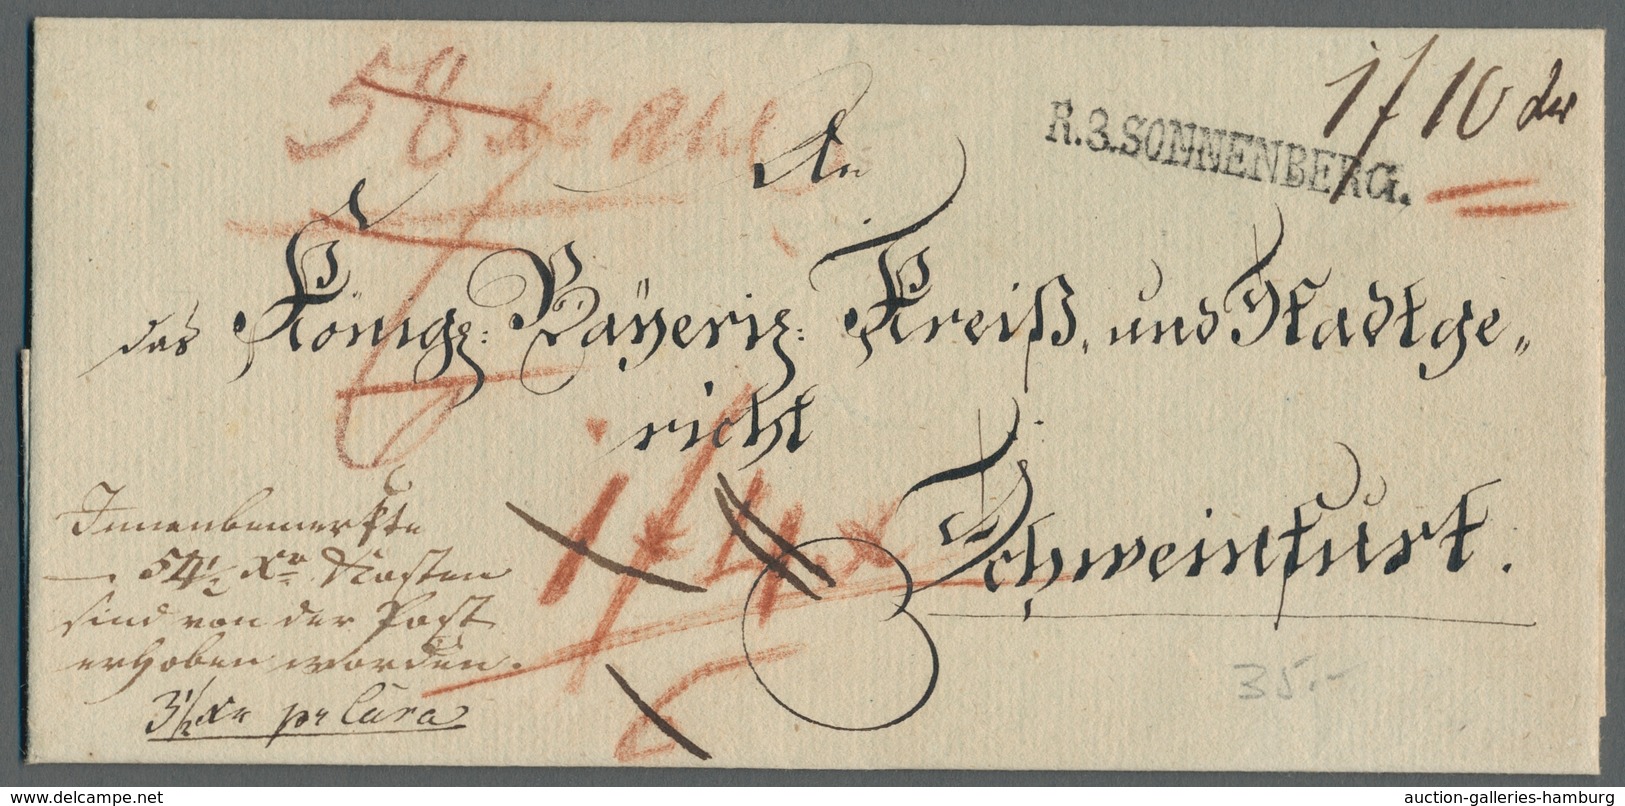 58
1f 10 dn
R.3.SONNENBERG.
An
das Königl: Bayeris: Kreiß, und Stadtge„
richt
Schweinfurt.
1f 4 x
Innenbemerkte
54½ Xr Kosten
sind von der Post
erhoben worden.
3½ Xr pr Cura
35.-
www.delcampe.net
auction-galleries-hamburg